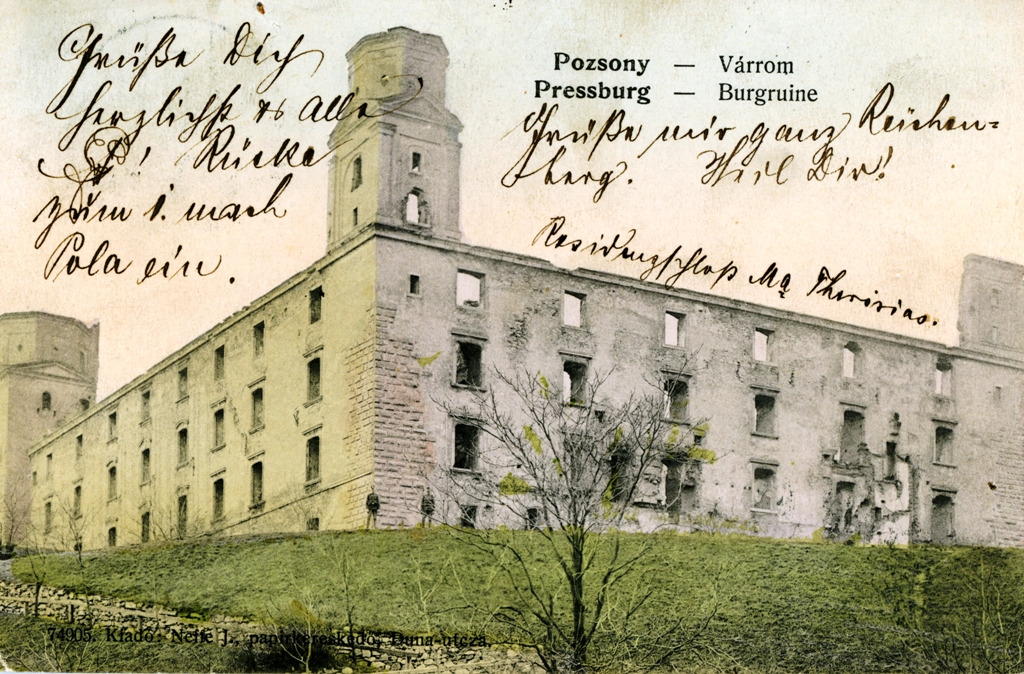 Grüße Dich
herzlichst es Alle
! Rücke
zum 1. mach
Pola ein.
Pozsony — Várrom
Pressburg — Burgruine
Grüße mir ganz Reichen=
berg. Heil Dir!
Residenzschloß Ma Theresias.
74905. Kiadó: Neffe J., papirkereskedő, Duna-utcza